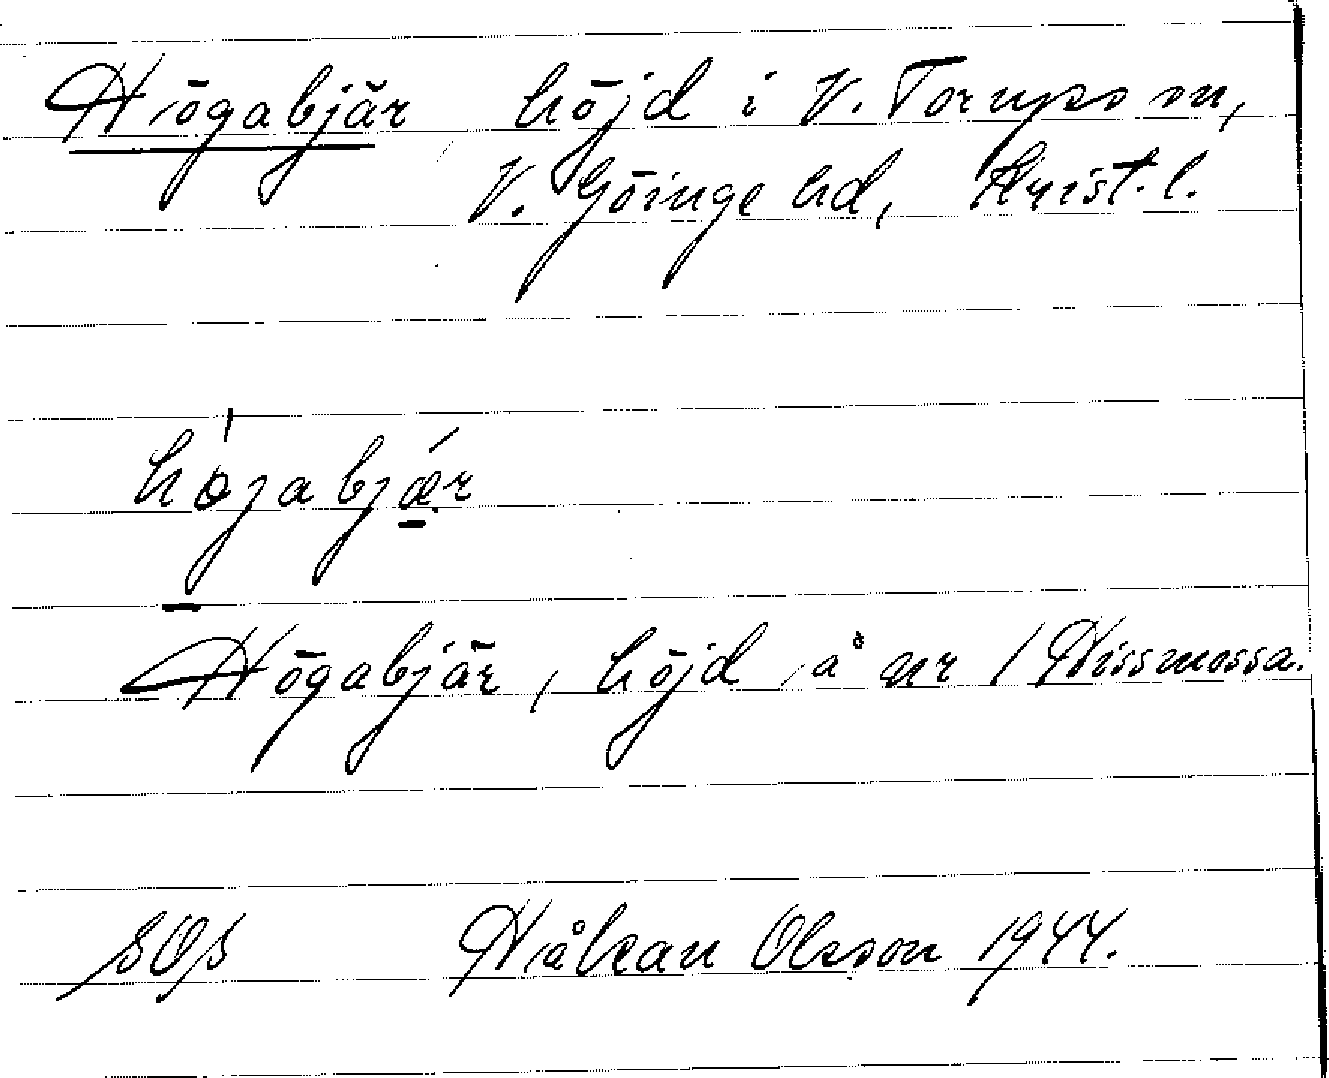 Högabjär höjd i V. Torups sn,
V. Göinge hd, Krist. l.
högabjær
Högabjär, höjd å nr 1 Hissmossa.
SOS Håkan Olsson 1944.